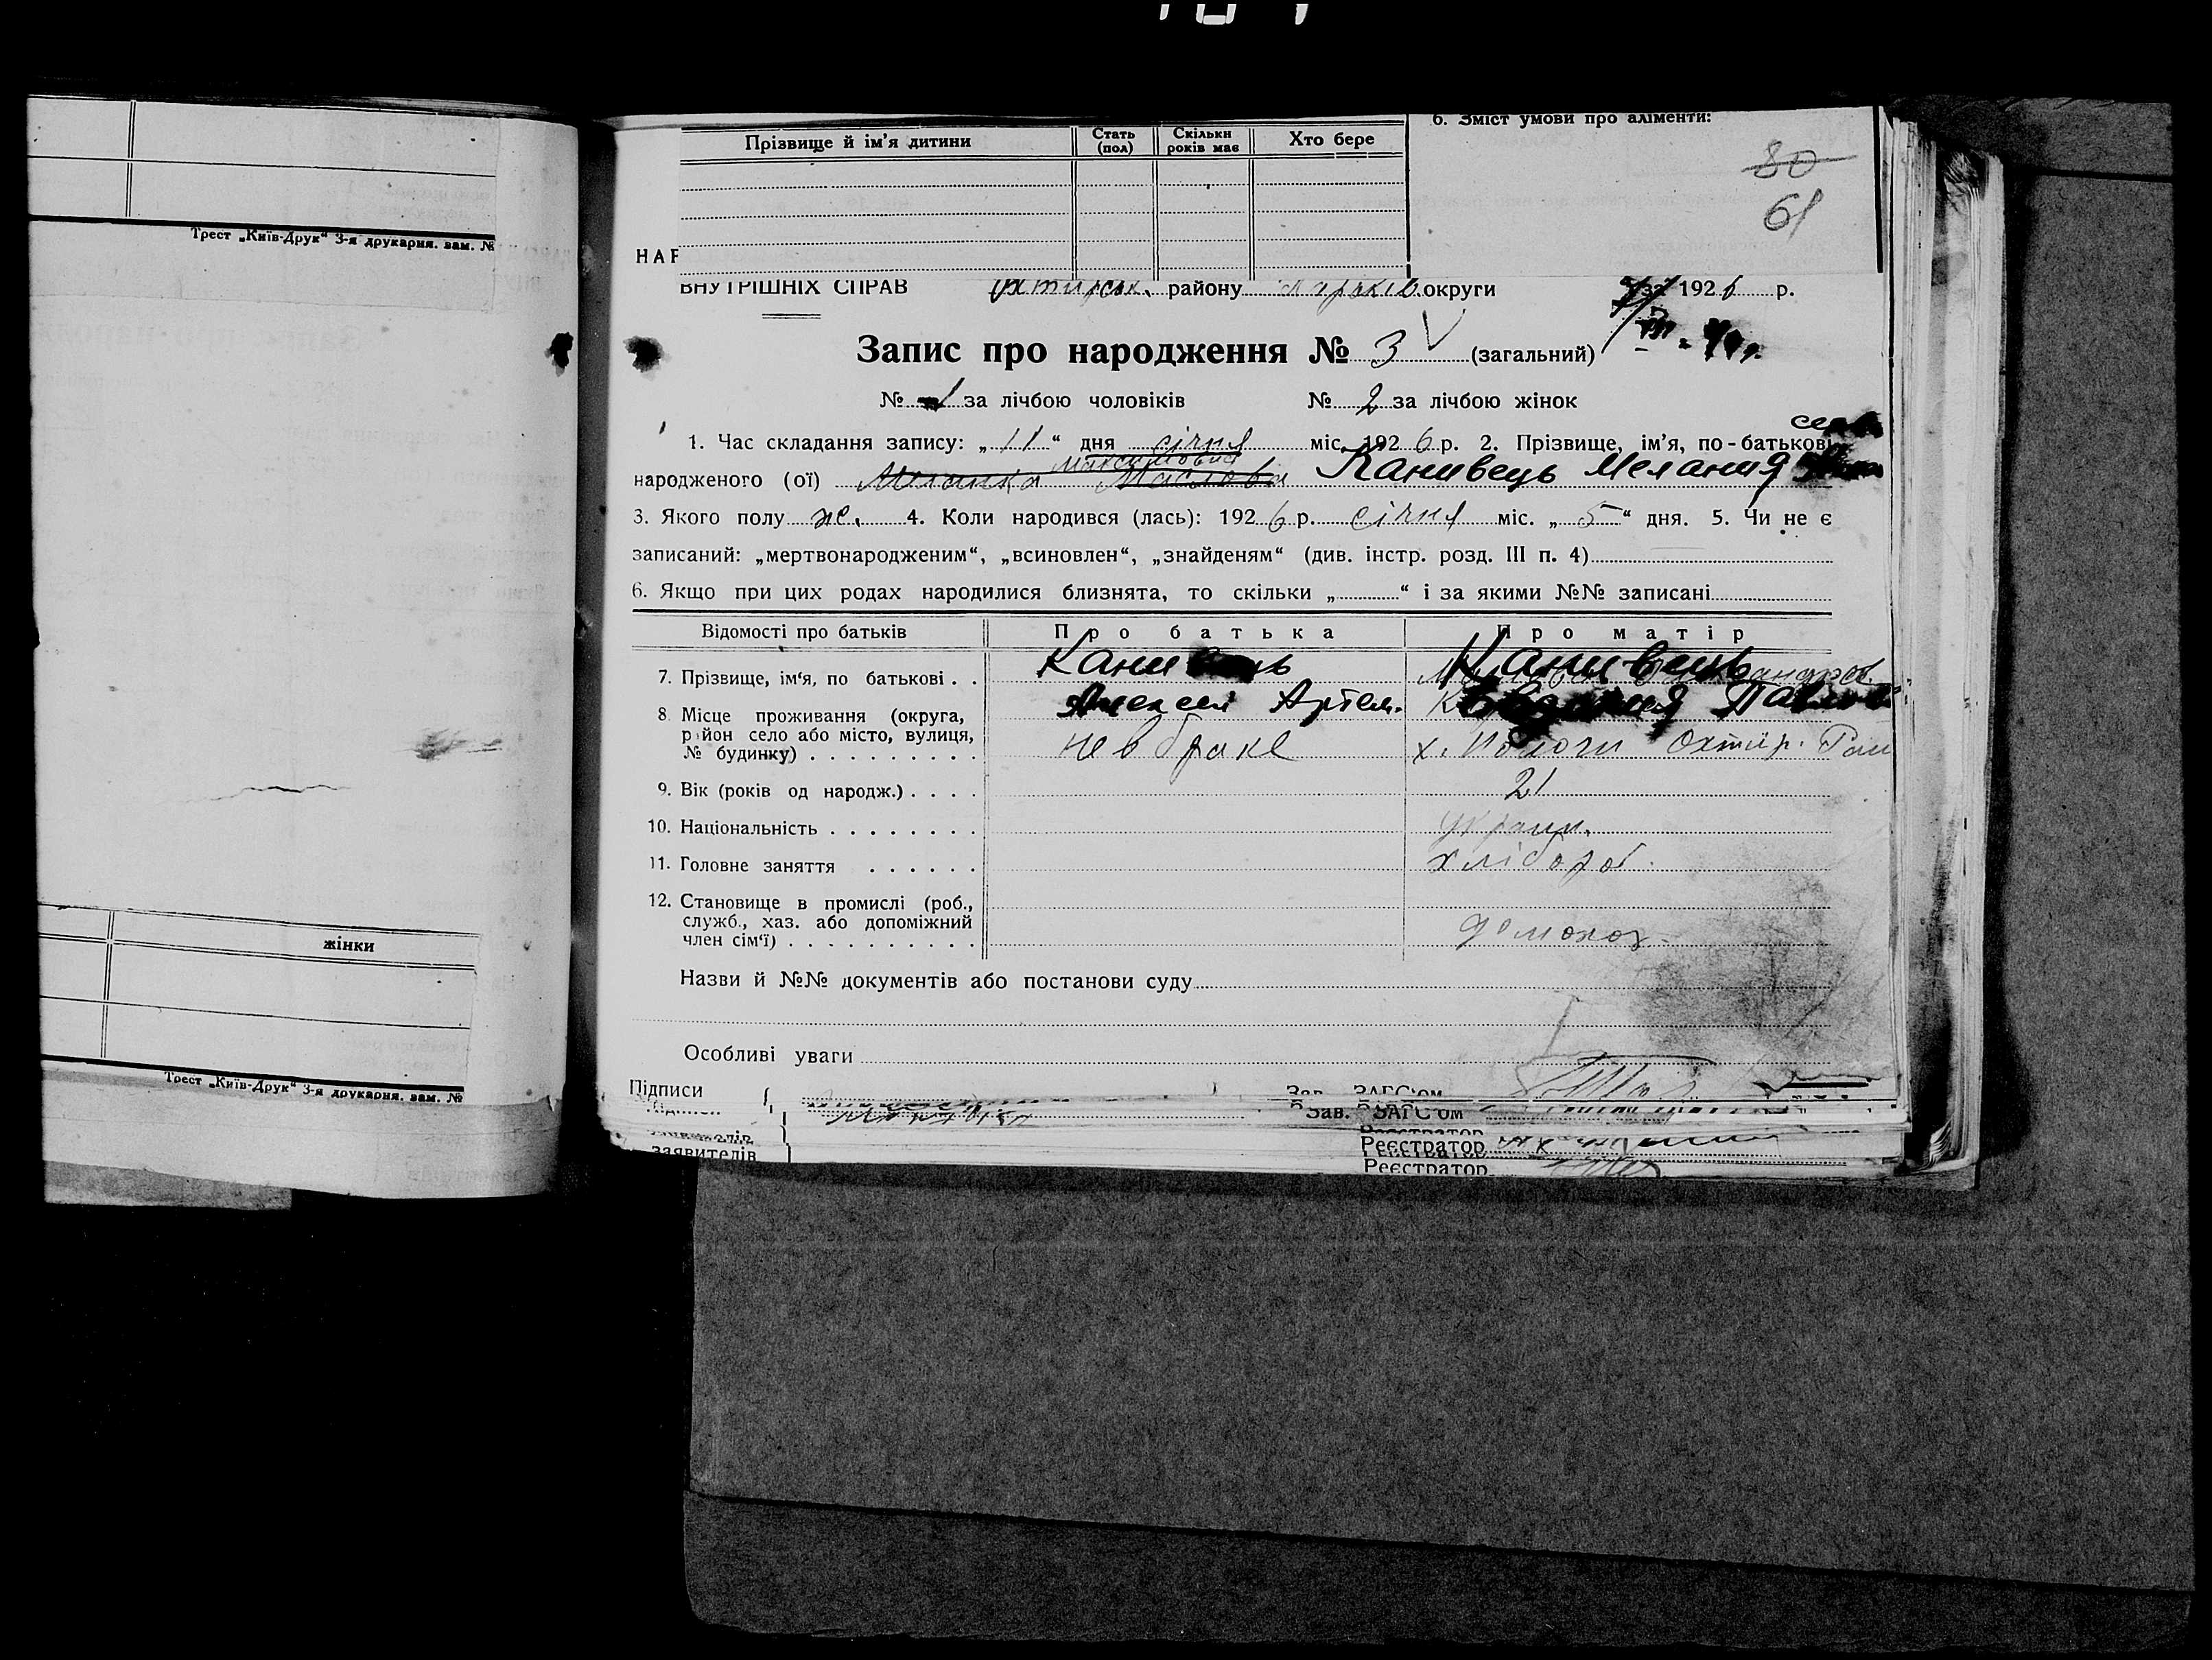 Трест „Київ-Друк“ 3-я друкарня. зам. №
жінки
Трест „Київ-Друк“ 3-я друкарня. зам. №
Прізвище й ім'я дитини Стать (пол) Скільки років має Хто бере
6. Зміст умови про аліменти:
80
61
НАР
ВНУТРІШНІХ СПРАВ Охтирськ. району Харьків. округи за 1926 р.
Запис про народження № 3 (загальний)
№ 1 за лічбою чоловіків № 2 за лічбою жінок
1. Час складання запису: „11“ дня січня міс. 1926 р. 2. Прізвище, ім'я, по-батькові
народженого (ої) Меланка Маслова Канивець Мелания
3. Якого полу ж. 4. Коли народився (лась): 1926 р. січня міс. „5“ дня. 5. Чи не є
записаний: „мертвонародженим“, „всиновлен“, „знайденям“ (див. інстр. розд. III п. 4)
6. Якщо при цих родах народилися близнята, то скільки „ “ і за якими №№ записані
Відомості про батьків Про батька Про матір
7. Прізвище, ім'я, по батькові . . Канивець Канивець
Алексей Артем. Павлов
8. Місце проживання (округа,
район село або місто, вулиця,
№ будинку) . . . . . . . . . не в браке х. Пологи Охтир. Рай
9. Вік (років од народж.) . . . . 21
10. Національність . . . . . . . . україн.
11. Головне заняття . . . . . . хлібороб.
12. Становище в промислі (роб.,
служб., хаз. або допоміжний
член сім'ї) . . . . . . . . . . домохоз.
Назви й №№ документів або постанови суду
Особливі уваги
Підписи Зав. ЗАГС'ом
Зав. ЗАГС'ом
Реєстратор
заявителів
Реєстратор